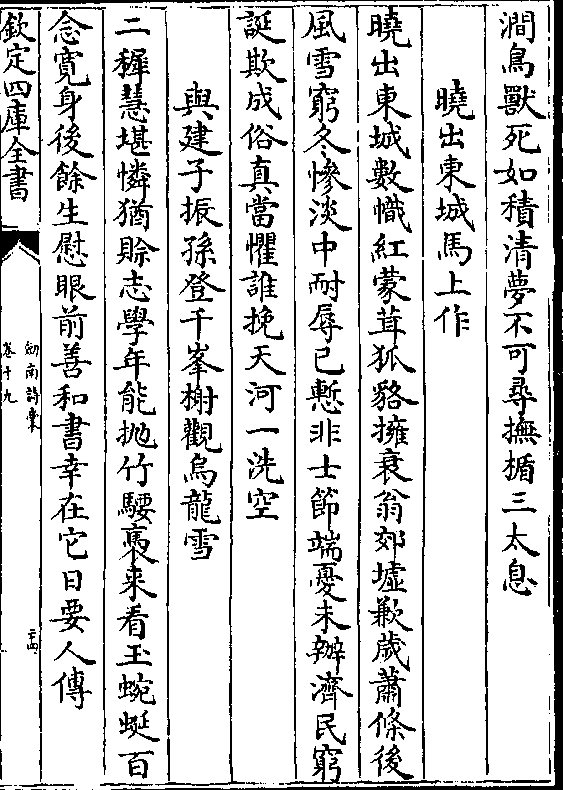 澗鳥獸死如積清夢不可尋撫楯三太息
曉出東城馬上作
曉出東城數幟紅蒙茸狐貉擁衰翁郊墟歉歲蕭條後
風雪窮冬慘淡中耐辱已慙非士節端憂未辦濟民窮
誕欺成俗真當懼誰挽天河一洗空
與建子振孫登千峯榭觀烏龍雪
二穉慧堪憐猶賖志學年能抛竹騕褭来看玉蜿蜒百
念寛身後餘生慰眼前善和書幸在它日要人傳
欽定四庫全書
劒南詩藁
卷十九
二十四